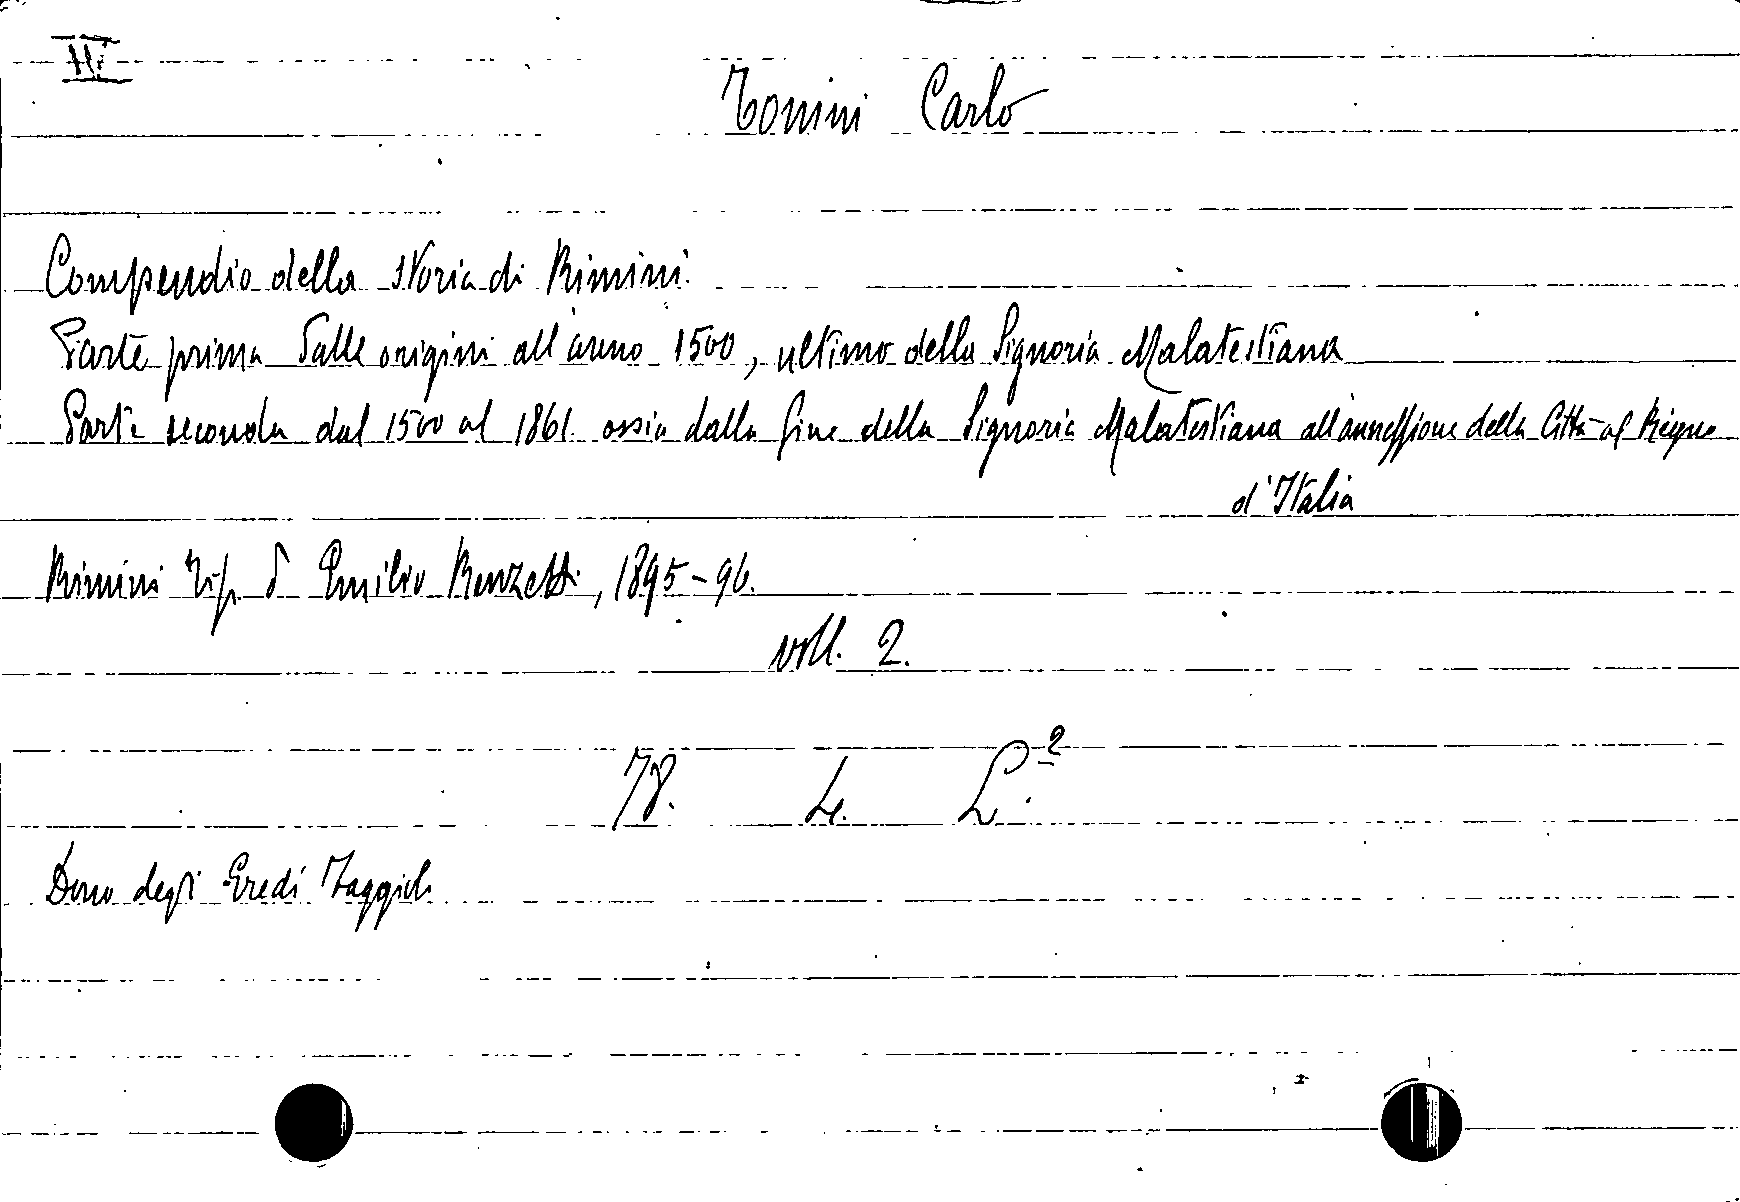 III
Tonini Carlo
Compendio della storia di Rimini.
Parte prima Dalle origini all'anno 1500, ultimo della Signoria Malatestiana
Parte seconda dal 1500 al 1861. ossia dalla fine della Signoria Malatestiana all'annessione della Città al Regno
d'Italia
Rimini Tip. d Emilio Renzetti, 1895-96.
voll. 2.
78.
Dono degli Eredi